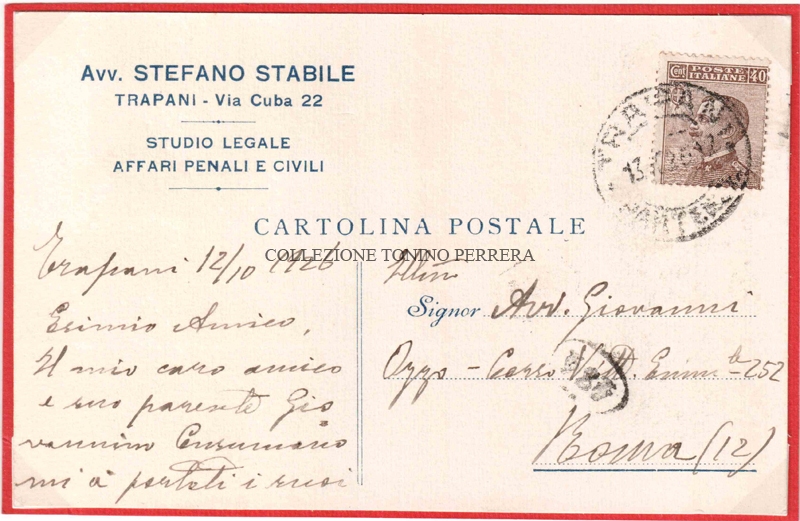 Avv. STEFANO STABILE
TRAPANI - Via Cuba 22
STUDIO LEGALE
AFFARI PENALI E CIVILI
Cent POSTE ITALIANE 40
TRAPANI
13
CARTOLINA POSTALE
COLLEZIONE TONINO PERRERA
Trapani 12/10 1926
Esimio Amico,
Il mio caro amico
e suo parente Gio
vannino Consumano
mi à portati i suoi
Illmo
Signor Avv. Giovanni
Ozzo - Corso Vitt. Emmle 252
Roma (12)